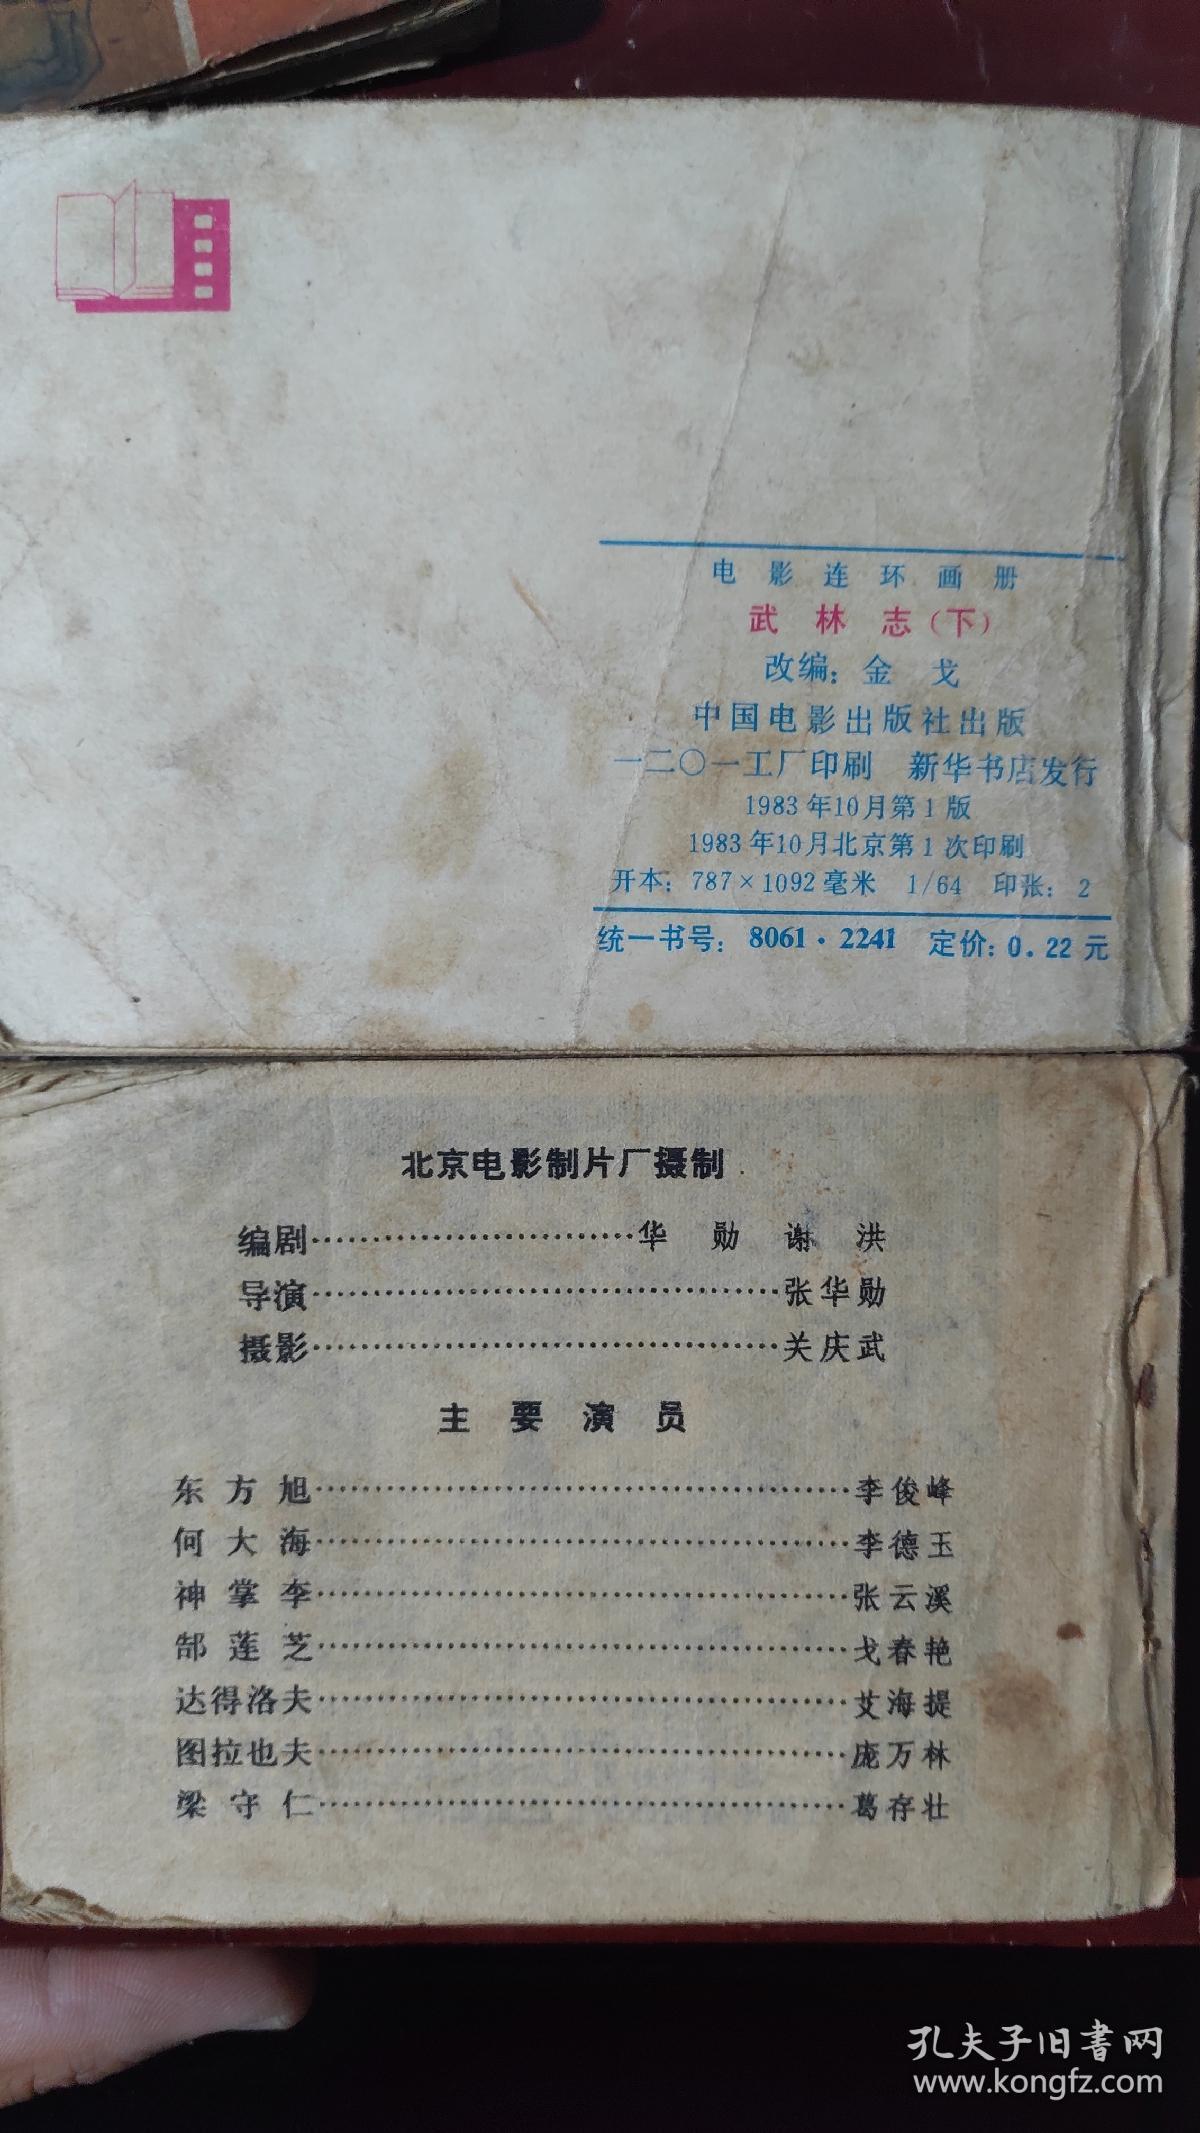 电影连环画册
武林志（下）
改编：金戈
中国电影出版社出版
一二〇一工厂印刷 新华书店发行
1983年10月第1版
1983年10月北京第1次印刷
开本：787×1092毫米 1/64 印张：2
统一书号：8061·2241 定价：0.22元
北京电影制片厂摄制
编剧…………………………华勋 谢洪
导演…………………………张华勋
摄影…………………………关庆武
主要演员
东方旭…………………………李俊峰
何大海…………………………李德玉
神掌李…………………………张云溪
郜莲芝…………………………戈春艳
达得洛夫…………………………艾海提
图拉也夫…………………………庞万林
梁守仁…………………………葛存壮
孔夫子旧书网
www.kongfz.com